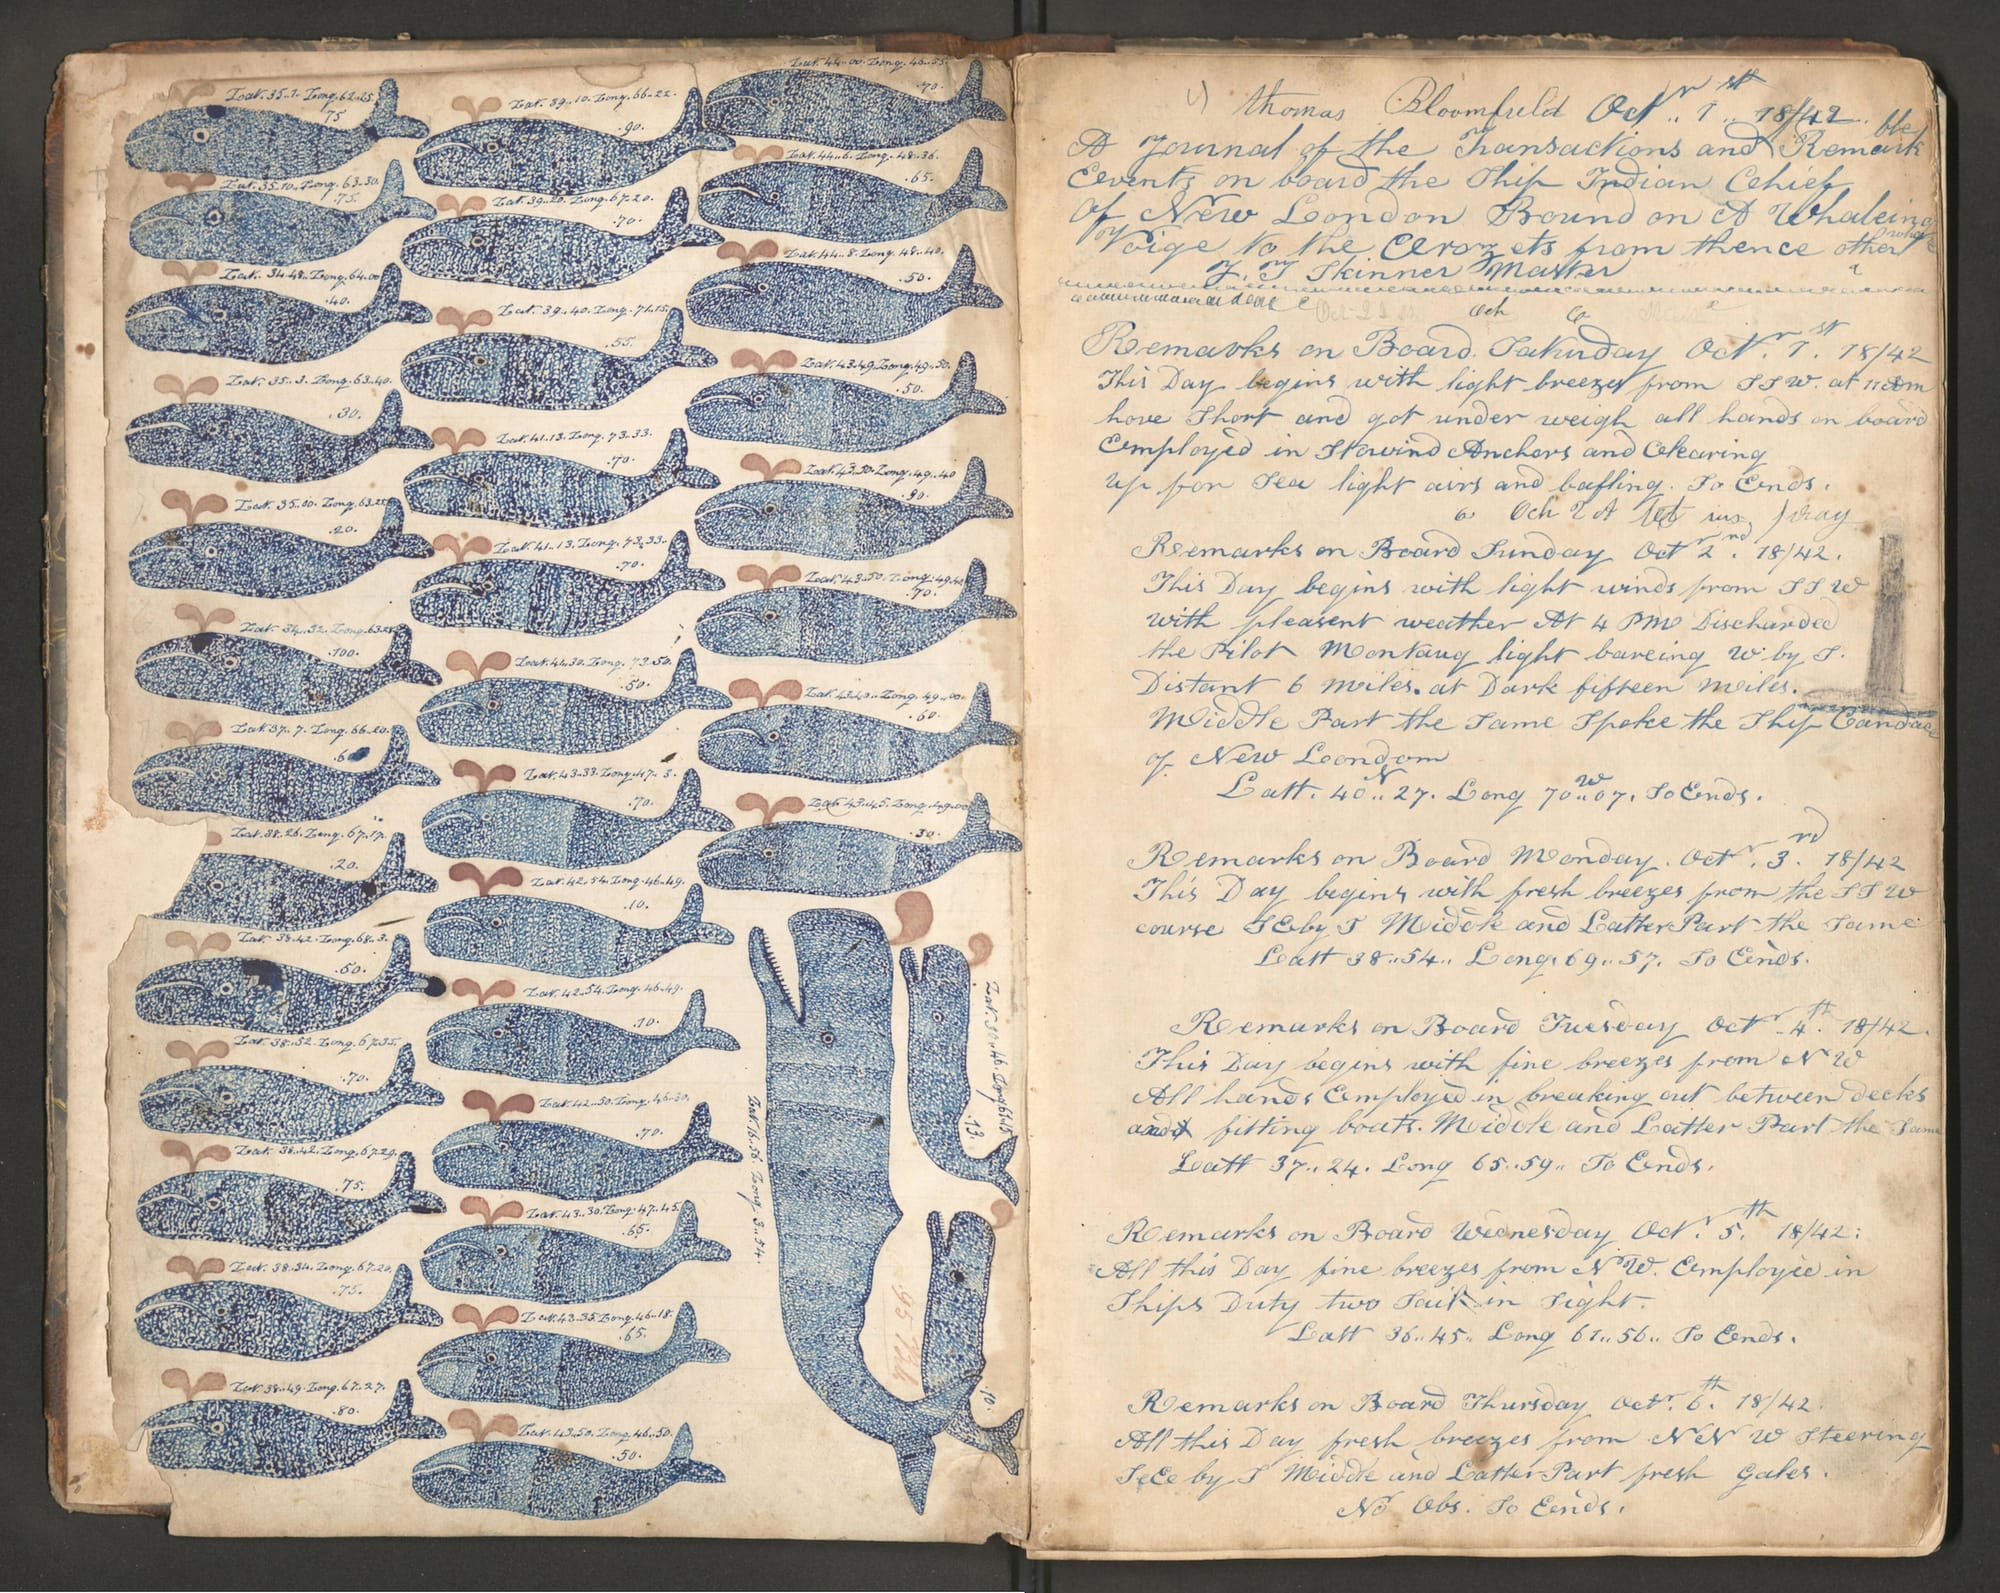 Lat. 35..1. Long. 62..25.
75
Lat. 35..10.. Long. 63..30.
.75.
Lat. 34..48.. Long. 64..00
.40.
Lat. 35..3. Long. 63..40.
.30.
Lat. 35..00. Long. 63..25
.20.
Lat. 34..32. Long. 63..25
.100.
Lat. 37..7. Long. 66..20.
.6
Lat. 38..26. Long. 67..17.
.20.
Lat. 38..42. Long. 68..3.
.60.
Lat. 38..52. Long. 67..35.
.70.
Lat. 38..42. Long. 67..29.
.75.
Lat. 38..34. Long. 67..20.
.75.
Lat. 38..49. Long. 67..27.
.80.
Lat. 39..10. Long. 66..22.
.90.
Lat. 39..20. Long. 67..20.
.70.
Lat. 39..40. Long. 71..15.
.55.
Lat. 41..13. Long. 73..33.
.70.
Lat. 41..13. Long. 73..33.
.70.
Lat. 41..30. Long. 73..50.
.50.
Lat. 43..33. Long. 47..3.
.70.
Lat. 42..54. Long. 46..49.
.10.
Lat. 42..54. Long. 46..49.
.10.
Lat. 42..50. Long. 46..30.
.70.
Lat. 43..30. Long. 47..45.
.65.
Lat. 43..35. Long. 46..18.
.65.
Lat. 43..50. Long. 46..50.
.50.
Lat. 44..00. Long. 46..55.
.70.
Lat. 44..6. Long. 48..36.
.65.
Lat. 44..8. Long. 48..40.
.50.
Lat. 43..49. Long. 49..50.
.50.
Lat. 43..50. Long. 49..40
.90.
Lat. 43..50. Long. 49..42
.70.
Lat. 43..40.. Long. 49..00.
.60.
Lat. 43..45. Long. 49..00
.30.
Lat. 16..56. Long. 3..54.
95 Bbl
Lat. 30..46. Long.
.13.
.10.
thomas Bloomfield Octr .. 1st .. 18/42..
A Journal of the Transactions and Remarkble
Events on board the Ship Indian Chief
Of New London Bound on A Whaleing
Voige to the Crozets from thence other
Skinner Master
Och
Remarks on Board. Saturday Octr. 1st. 18/42
This Day begins with light breezes from S S W. at 11 Am
hove Short and got under weigh all hands on board
Employed in Stowind Anchors and Clearing
up for Sea light airs and bafling. So Ends.
Och 2 A
Remarks on Board Sunday Octr 2nd. 18/42.
This Day begins with light winds from S S W
with pleasent weather At 4 PM Discharded
the Pilot Montaug light bareing W by S.
Distant 6 Miles. at Dark fifteen Miles.
Middle Part the Same Spoke the Ship Candace
of New London
Latt. 40 N.. 27. Long 70 W.. 07. So Ends.
Remarks on Board Monday. Octr. 3rd. 18/42
This Day begins with fresh breezes from the S S W
course S E by S Middle and Latter Part the Same
Latt 38..54.. Long. 69..57. So Ends.
Remarks on Board Tuesday Octr. 4th. 18/42.
This Day begins with fine breezes from N W
All hands Employed in breaking out between decks
and fitting boats. Middle and Latter Part the Same
Latt 37..24. Long 65..59.. So Ends.
Remarks on Board Wednesday Octr. 5th. 18/42:
All this Day fine breezes from N W. Employie in
Ships Duty two Sail in Sight.
Latt 36..45.. Long 61..56.. So Ends.
Remarks on Board Thursday Octr. 6th. 18/42.
All this Day fresh breezes from N N W Steering
S E by S Middle and Latter Part fresh Gales.
No Obs. So Ends.